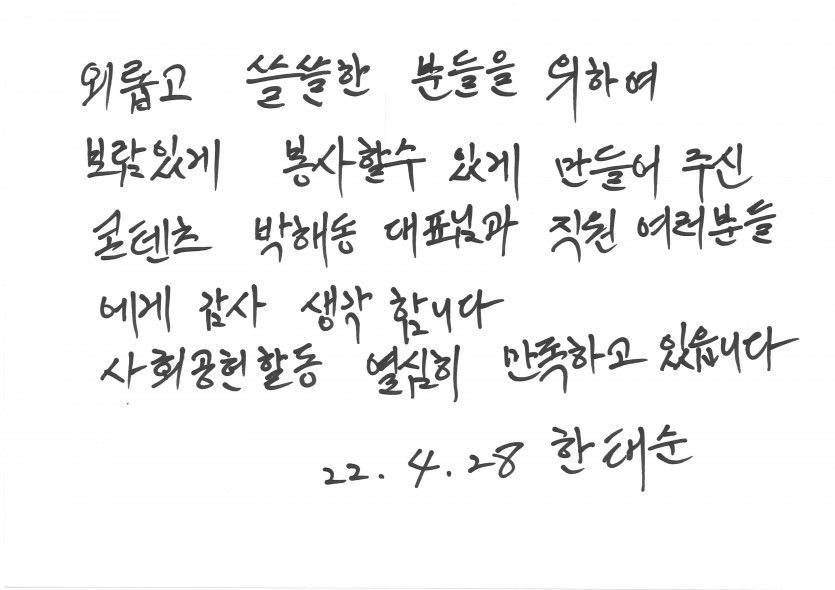 외롭고 쓸쓸한 분들을 위하여
보람있게 봉사할수 있게 만들어 주신
콘텐츠 박해동 대표님과 직원 여러분들
에게 감사 생각 합니다
사회공헌활동 열심히 만족하고 있읍니다
22. 4. 28 한태순